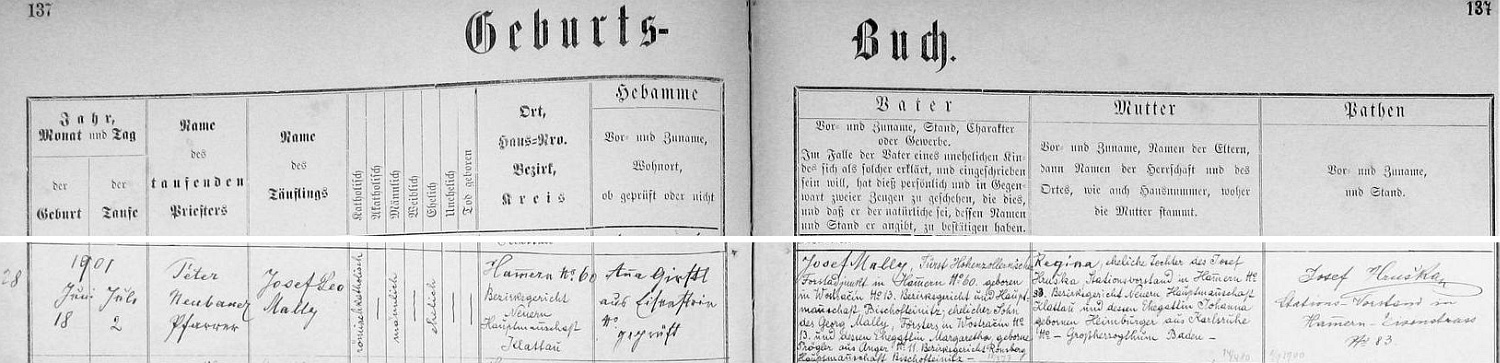 137
137
Geburts-
Buch.
Jahr,
Monat und Tag
der
Geburt
der
Taufe
Name
des
taufenden
Priesters
Name
des
Täuflings
Katholisch
Akatholisch
Männlich
Weiblich
Ehelich
Unehelich
Tod geboren
Ort,
Haus-Nro.
Bezirk,
Kreis
Hebamme
Vor- und Zuname,
Wohnort,
ob geprüft oder nicht
Vater
Vor- und Zuname, Stand, Charakter
oder Gewerbe.
Im Falle der Vater eines unehelichen Kin-
des sich als solcher erklärt, und eingeschrieben
sein will, hat dieß persönlich und in Gegen-
wart zweier Zeugen zu geschehen, die dies,
und daß er der natürliche sei, dessen Namen
und Stand er angibt, zu bestätigen haben.
Mutter
Vor- und Zuname, Namen der Eltern,
dann Namen der Herrschaft und des
Ortes, wie auch Hausnummer, woher
die Mutter stammt.
Pathen
Vor- und Zuname,
und Stand.
28
1901
Juni Juli
18 2
Peter
Neubauer
Pfarrer
Josef Leo
Mally
römischkatholisch
männlich
ehelich
Hamern No 60
Bezirksgericht
Neuern
Hauptmannschaft
Klattau
Ana Girstl
aus Eisenstein
No
geprüft
Josef Mally, Fürst Hohenzollernsche
Forstadjunkt in Hamern No 60. geboren
in Wostračin No 13. Bezirksgericht und Haupt-
mannschaft Bischofteinitz, ehelicher Sohn
des Georg Mally, Försters in Wostračin No
13. und dessen Ehegattin Margaretha, geborne
Pröger aus Anger No 11. Bezirksgericht Ronsberg
Hauptmannschaft Bischofteinitz -
Regina, eheliche Tochter des Josef
Hruska Stationsvorstand in Hamern No
83. Bezirksgericht Neuern Hauptmannschaft
Klattau und dessen Ehegattin Johanna
gebornen Heimburger aus Karlsruhe
No - Großherzogthum Baden -
Josef Hruška
Stations-Vorstand in
Hamern - Eisenstrass
No 83.